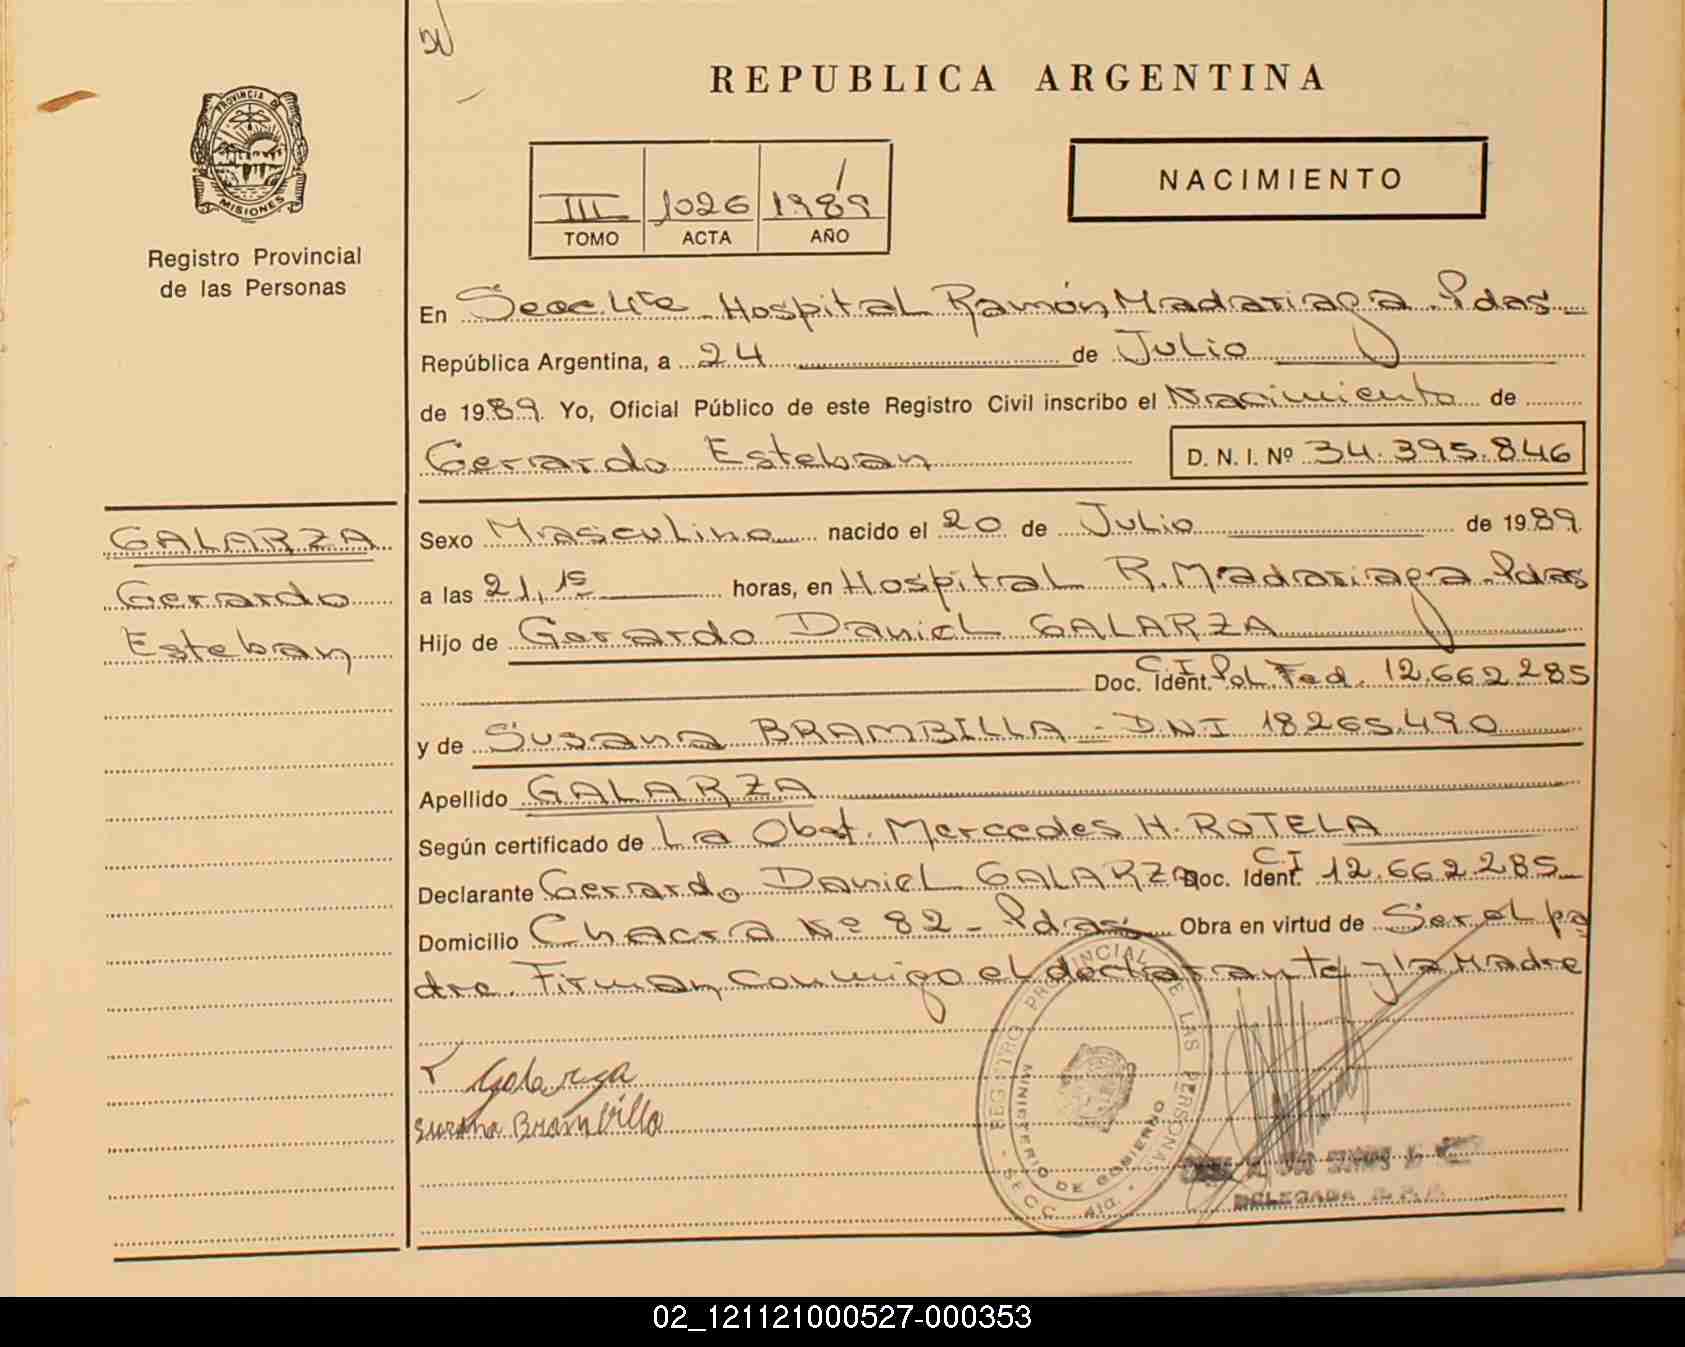 REPUBLICA ARGENTINA
PROVINCIA DE
MISIONES
Registro Provincial
de las Personas
NACIMIENTO
III 1026 1989
TOMO ACTA AÑO
En Secc. 4ta. Hospital Ramón Madariaga. Pdas
República Argentina, a 24 de Julio
de 1989. Yo, Oficial Público de este Registro Civil inscribo el Nacimiento de
Gerardo Esteban D. N. I. Nº 34.395.846
GALARZA
Gerardo
Esteban
Sexo Masculino nacido el 20 de Julio de 1989.
a las 21,15 horas, en Hospital R. Madariaga. Pdas
Hijo de Gerardo Daniel GALARZA
Doc. Ident. C.I. Pol. Fed. 12.662.285
y de Susana BRAMBILLA - DNI 18265.490
Apellido GALARZA
Según certificado de La Obst. Mercedes H. ROTELA
Declarante Gerardo Daniel GALARZA Doc. Ident. C.I 12.662.285
Domicilio Chacra Nº 82 - Pdas Obra en virtud de Ser el pa
dre. Firman conmigo el declarante y la Madre
Galarza
Susana Brambilla
REGISTRO PROVINCIAL DE LAS PERSONAS
MINISTERIO DE GOBIERNO
SECC. 4ta.
DELEGADA
02_121121000527-000353